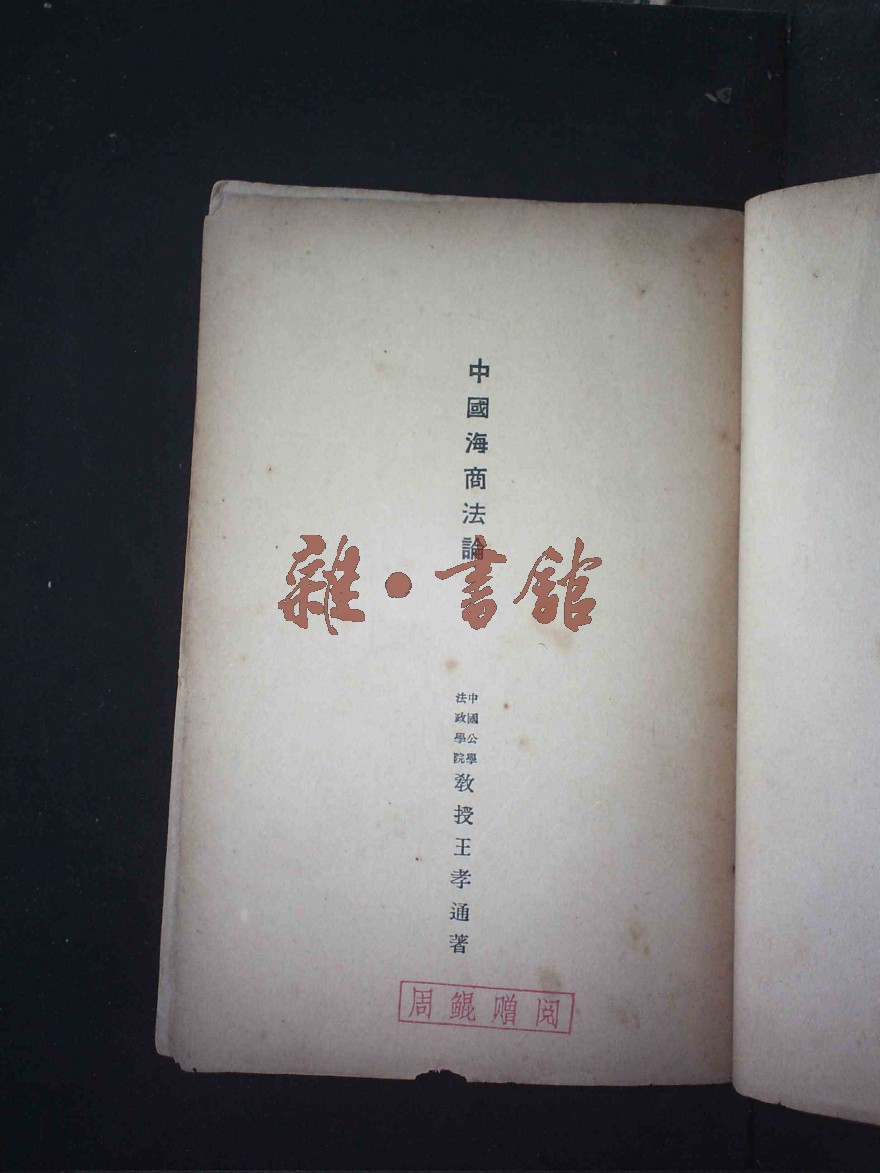 中國海商法論
雜·書館
中國公學
法政學院
教授王孝通著
周鲲赠阅